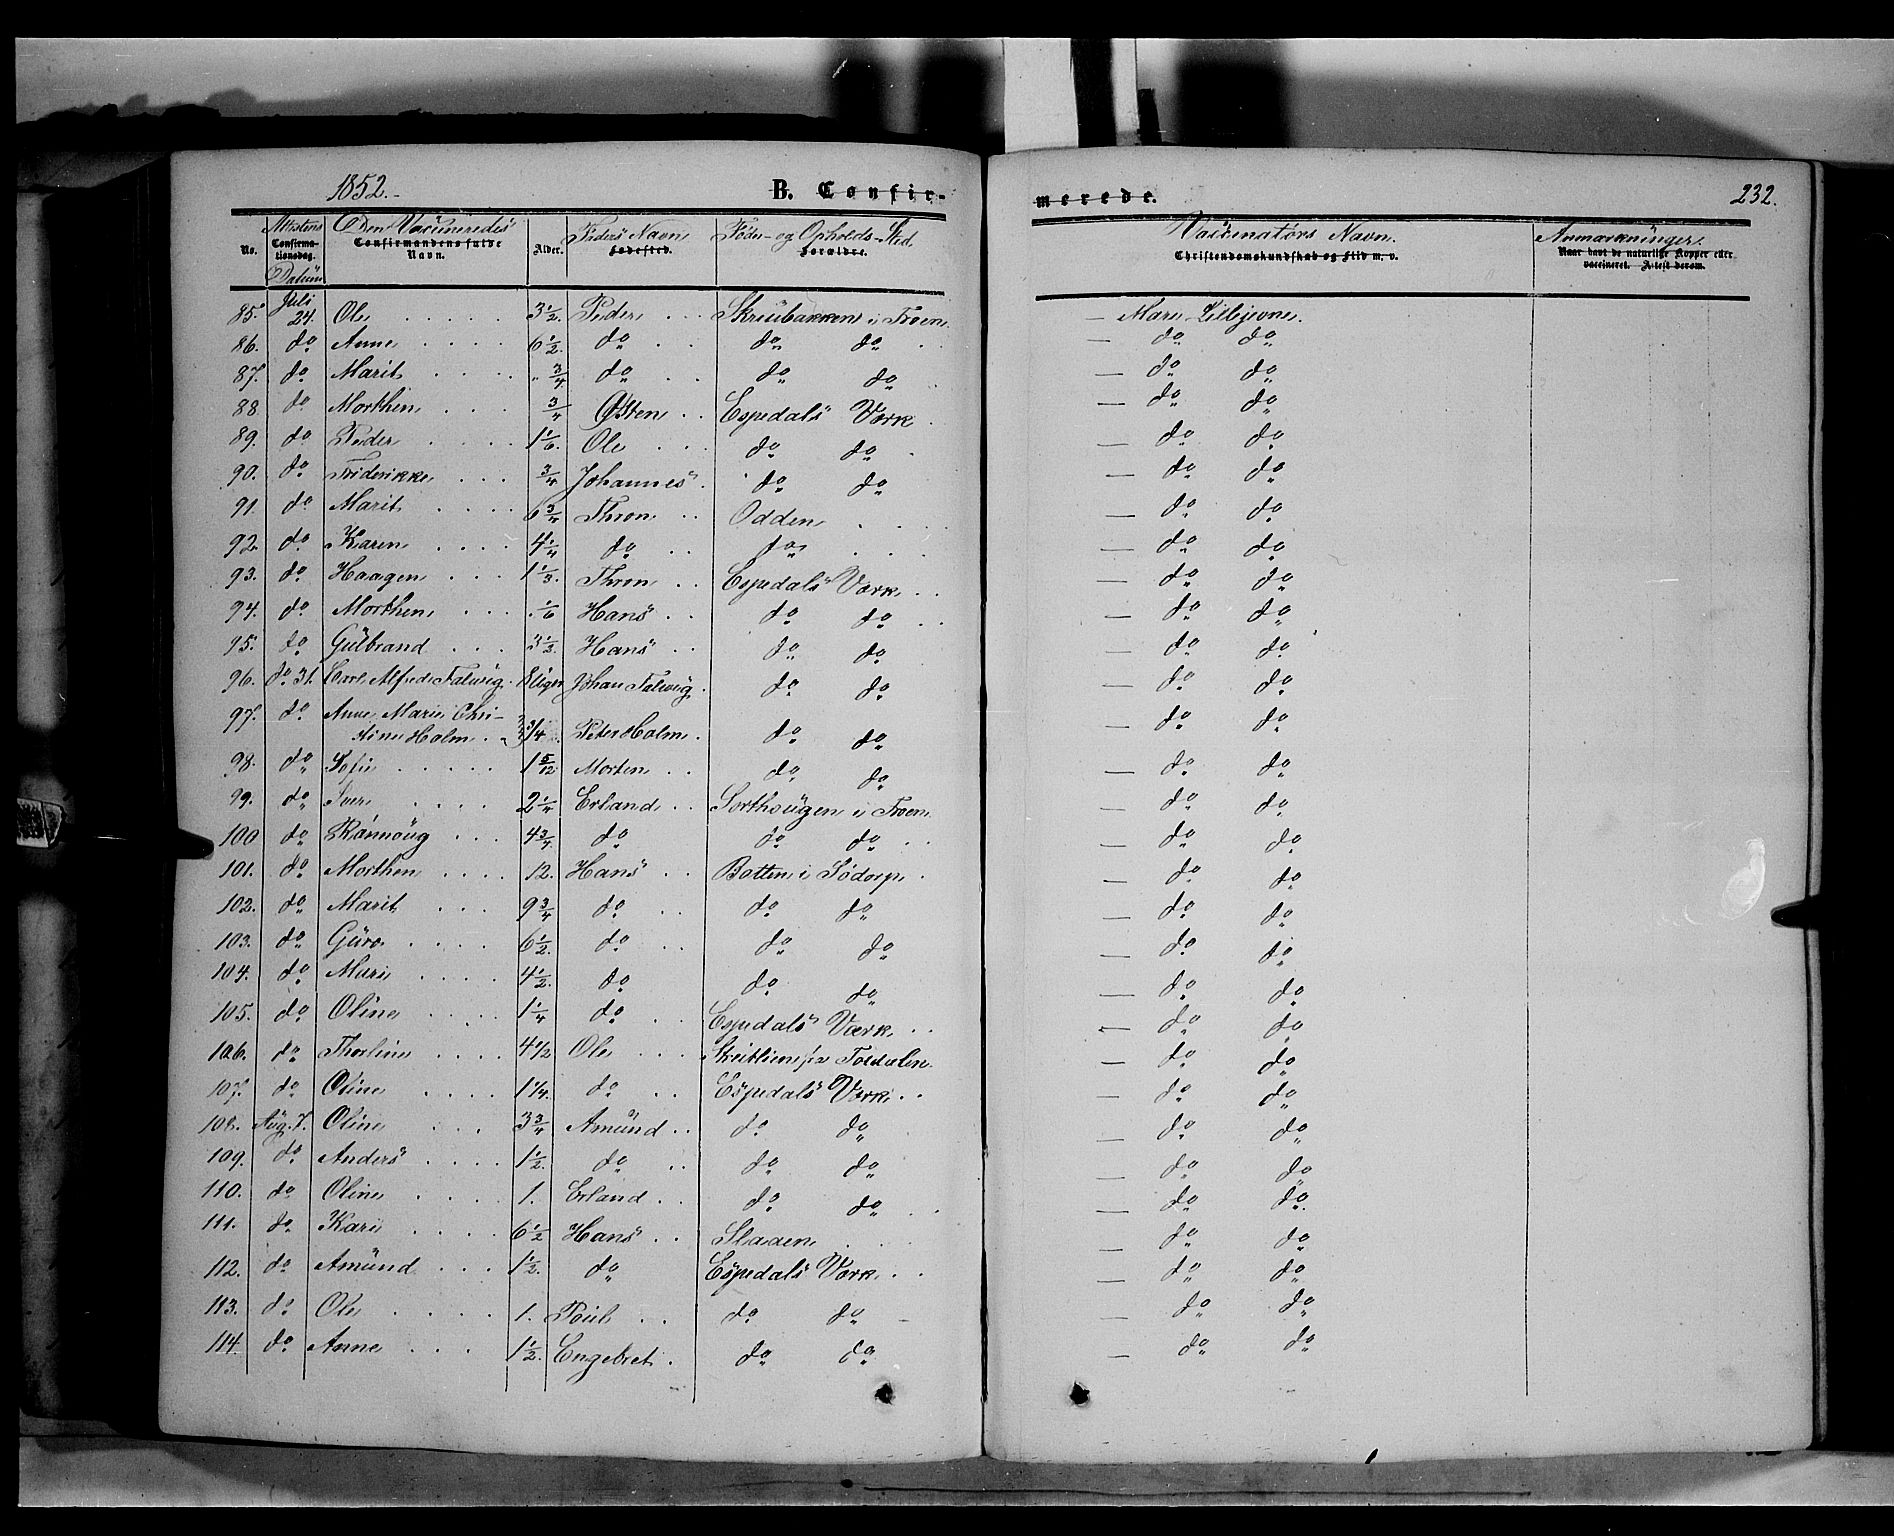 1852.- B. Confir- merede. 232.
No. Attestens Datum Confirmationsdag. Den Vaccineredes Confirmandens fulde Navn. Alder. Faders Navn Fødested. Føde- og Opholds-Sted Forældre. Vaccinatørs Navn. Christendomskundskab og Flid m. v. Anmærkninger. Naar havt de naturlige Kopper eller vaccineret. Attest derom.
85. Juli 24. Ole 3 1/2. Peder Skreubakken i Froen — Mari
86. do Anne 6 1/2. do do do — do do
87. do Marit " 3/4. do do do — do do
88 do Morthen 3/4 Østen Espedals Værk — do do
89. do Peder 1 1/6. Ole do do — do do
90. do Friderikke 3/4 Johannes do do — do do
91. do Marit 6 3/4 Thron Odden — do do
92 do Karen 4 1/4 do do — do do
93. do Haagen 1 1/3. Thron Espedals Værk — do do
94. do Morthen 1/6 Hans do do — do do
95. do Gulbrand 3 1/2. Hans do do — do do
96. do 31. Carl Alfred Johan do do — do do
97. do Anne Marie Chri-
stine Holm 3 3/4 Peter Holm do do — do do
98. do Sofie 1 5/12 Morten do do — do do
99. do Iver 2 1/4 Erland Sorthougen i Froen — do do
100 do Rønnoug 4 3/4 do do do — do do
101. do Morthen 12. Hans Botten i Sødorp — do do
102. do Marit 9 3/4 do do do — do do
103. do Guro 6 1/2. do do do — do do
104. do Mari 4 1/2. do do do — do do
105. do Oline 1 1/4 do Espedals Værk - do do
106. do Thorline 4 1/2 Ole — do do
107. do Oline 1 1/4. do Espedals Værk — do do
108. Aug. 7. Oline 3 3/4 Amund do do — do do
109. do Anders 1 1/2. do do do — do do
110. do Oline 1. Erland do do — do do
111. do Kari 6 1/2 Hans Slaaen — do do
112. do Amund 1 1/2. do Espedals Værk — do do
113. do Ole 1. Poul do do — do do
114. do Anne 1 1/2. Engebret do do — do do